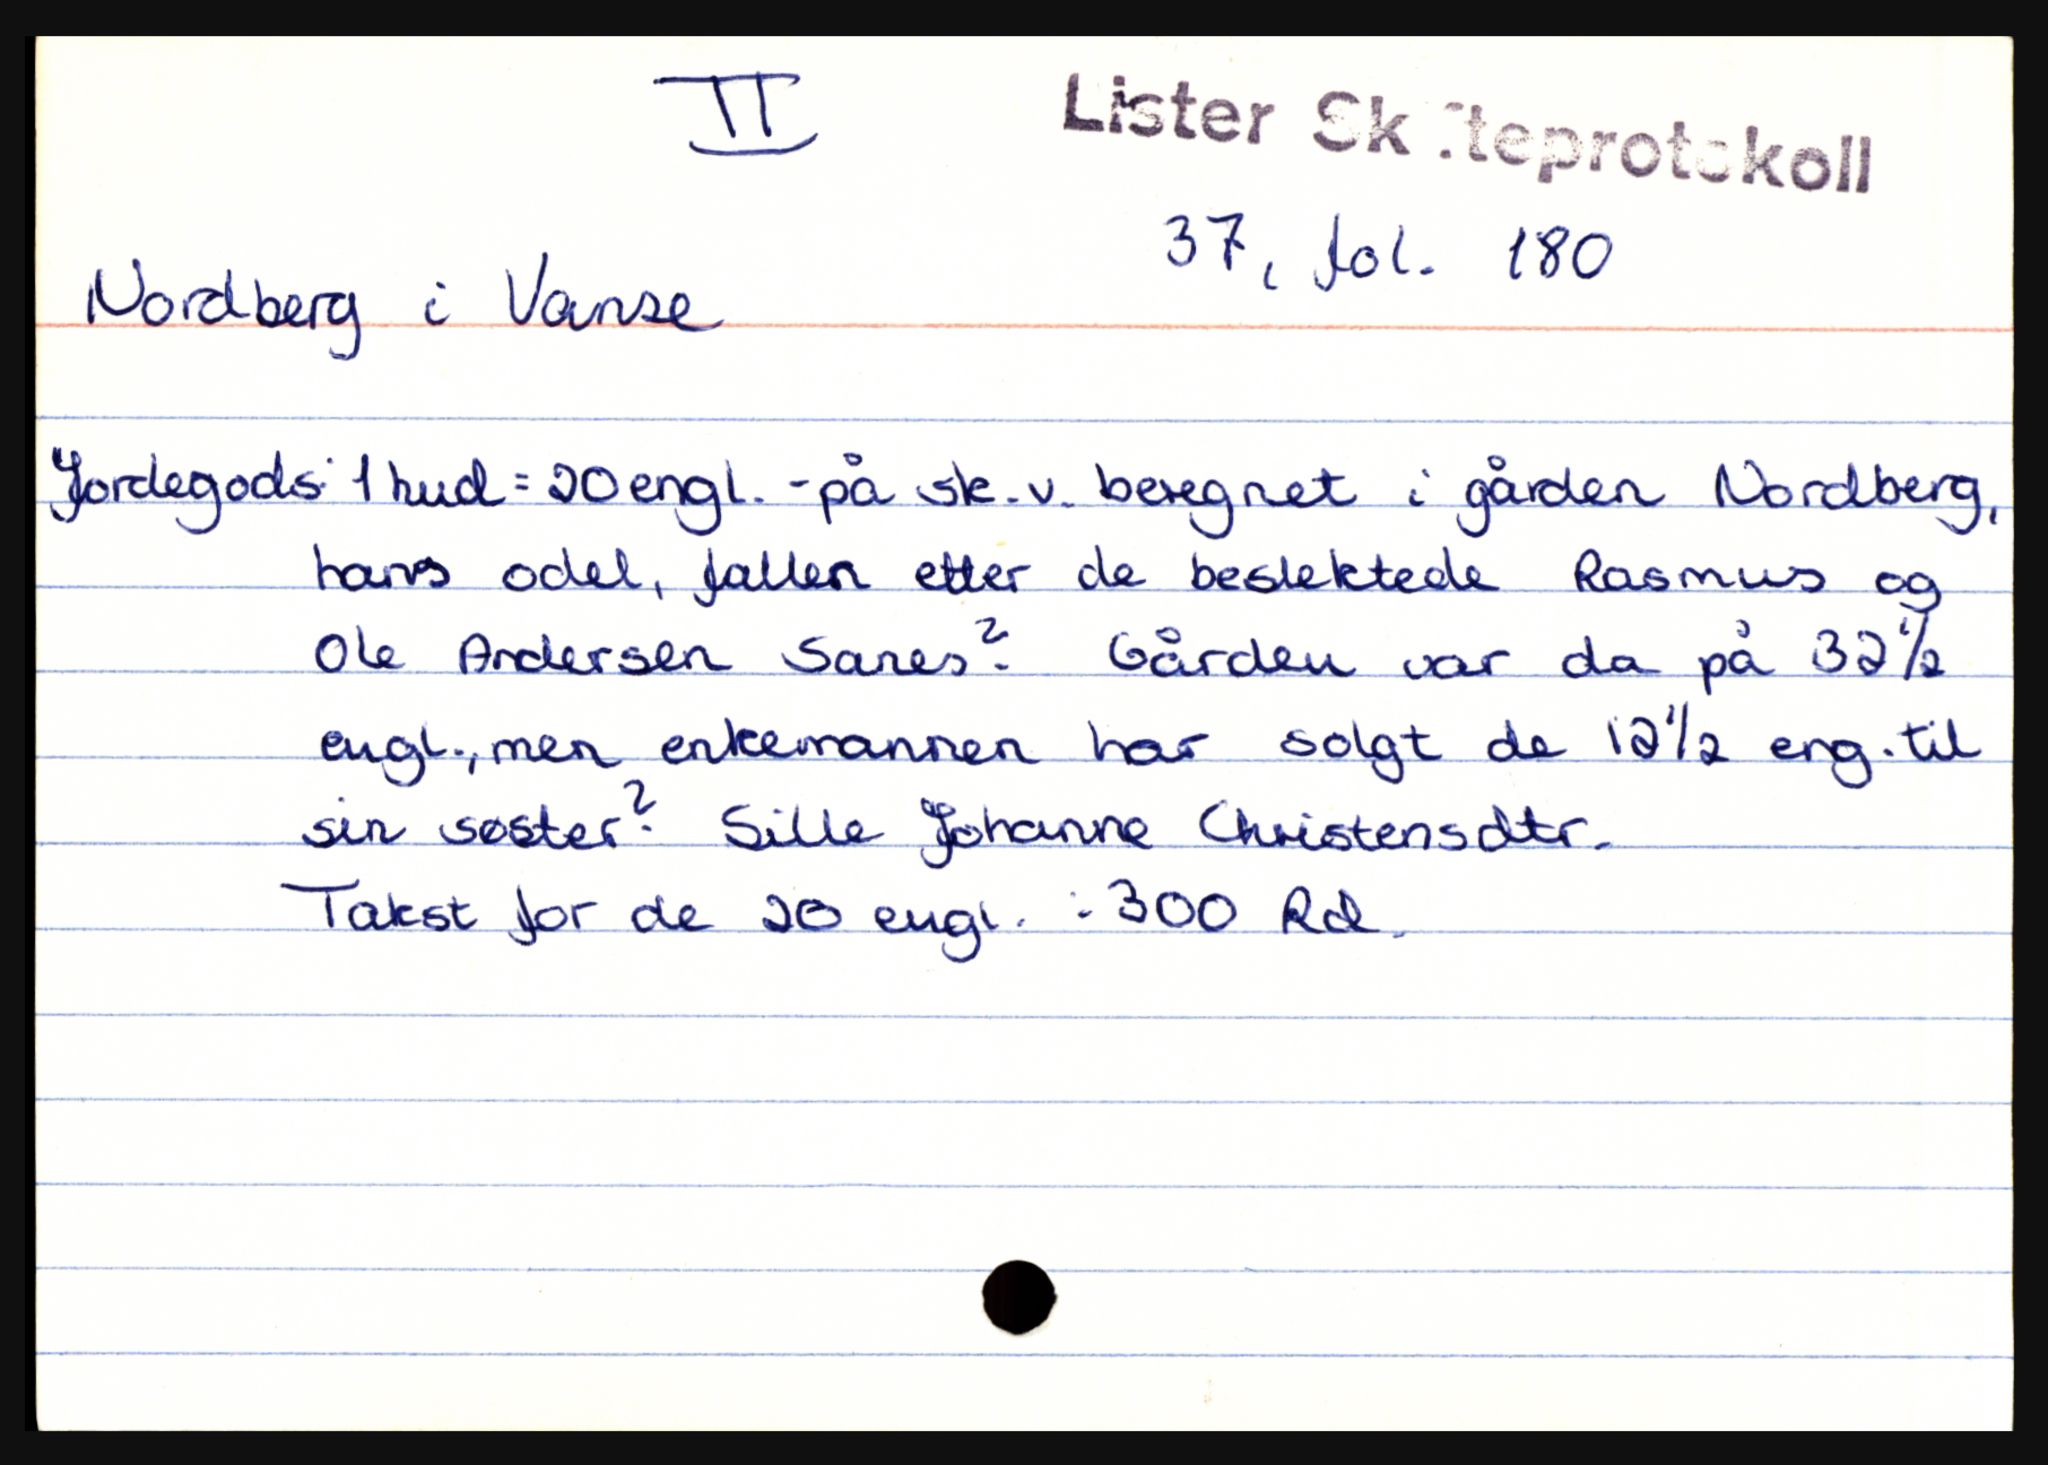 II
Lister Skifteprotokoll
37, fol. 180
Nordberg i Vanse
Jordegods: 1 hud = 20 engl. - på sk. v. beregnet i gården Nordberg,
hans odel, fallen etter de beslektede Rasmus og
Ole Andersen Sanes? Gården var da på 32 1/2
engl., men enkemannen har solgt de 12 1/2 eng. til
sin søster? Sille Johanne Christensdtr.
Takst for de 20 engl. : 300 Rd.